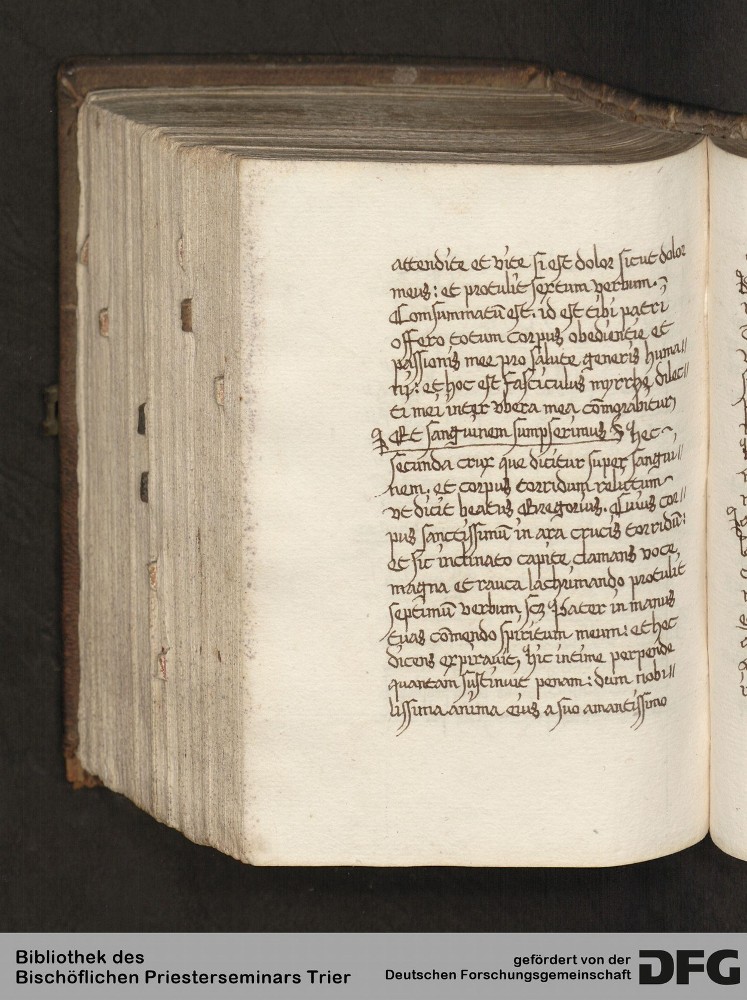 attendite et vite si est dolor sicut dolor
meus: et protulit sextum verbum.
Comsummatū est. id est tibi patri
offero totum corpus obedientie et
passionis mee pro salute generis huma//
nj: et hoc est fasciculus myrrhę dilec//
ti mei inter vbera mea cōmorabitur
Et sanguinem sumpserimus Hec
secunda crux que dicitur super sangui//
nem. et corpus torridum relictum
vt dicit beatus Gregorius. Cuius cor//
pus sanctissimū in ara crucis torridū:
et sic inclinato capite, clamans voce,
magna et rauca lachrimando protulit
septimū verbum, scz Pater in manus
tuas cōmendo spiritum meum: et hec
dicens expirauit, hic intime perpende
quantam sustinuit penam: dum nobi//
lissima anima eius a suo amantissimo
Bibliothek des
Bischöflichen Priesterseminars Trier
gefördert von der
Deutschen Forschungsgemeinschaft
DFG